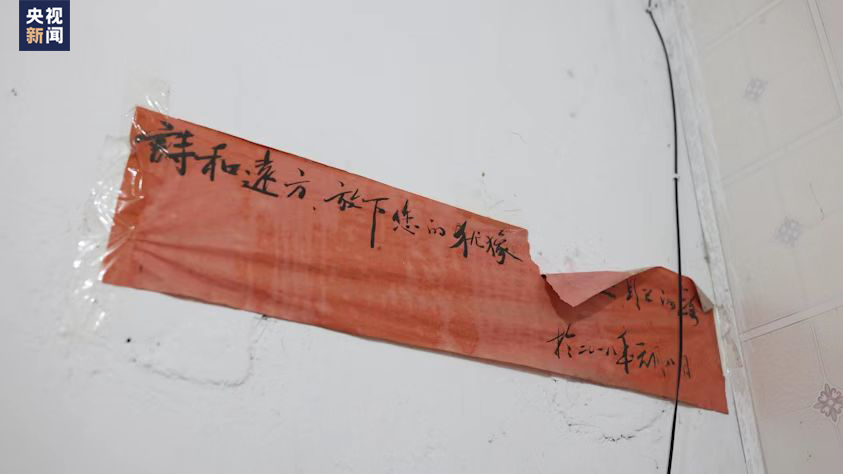 央视
新闻
詩和遠方、放下您的犹豫
於二〇一八年